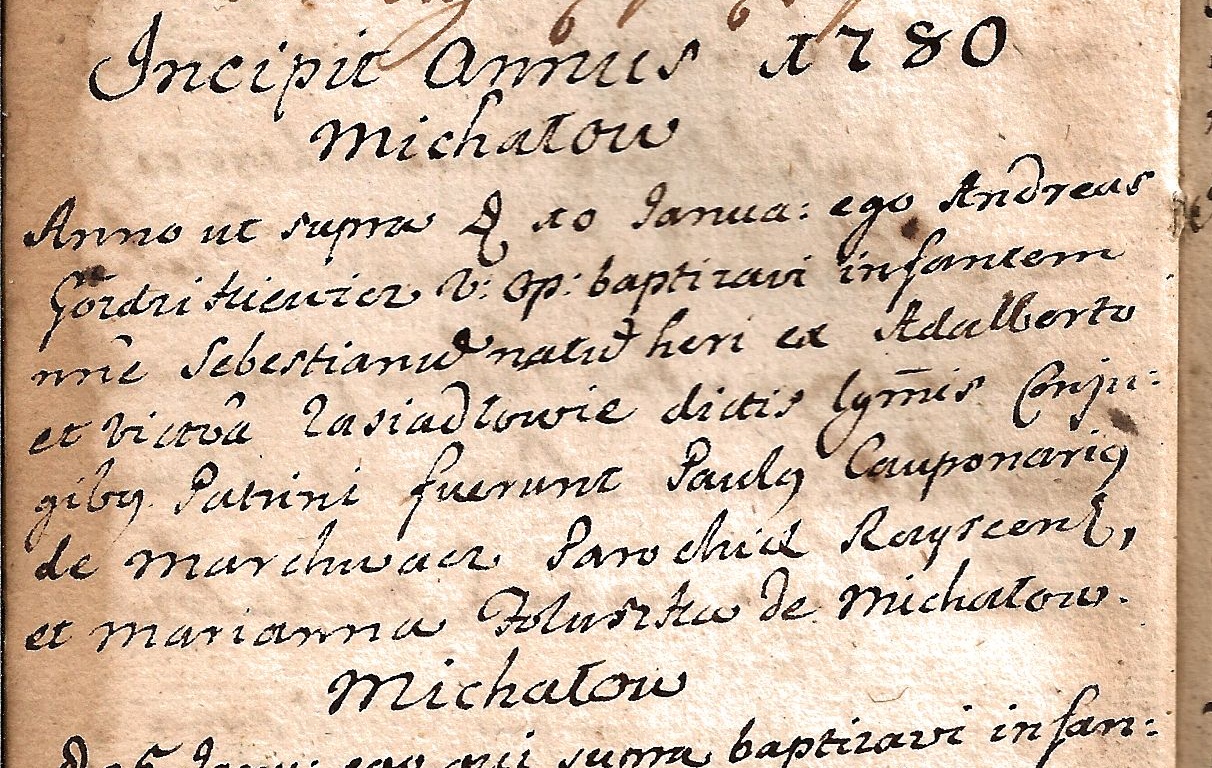 Incipit Annus 1780
Michałow
Anno ut supra D 10 Janua: ego Andreas
V: Op: baptizavi infantem
nn̄e Sebestianū natū heri ex Adalberto
et Victōa Zasiadłowie dictis lgm̄is Conju-:
gibꝯ Patrini fuerunt Paulꝯ Cauponariꝯ
de Marchwacz Parochiæ
et Marianna Foluszka de Michałow.
Michałow
Janu: ego qui supra baptizavi infan-: